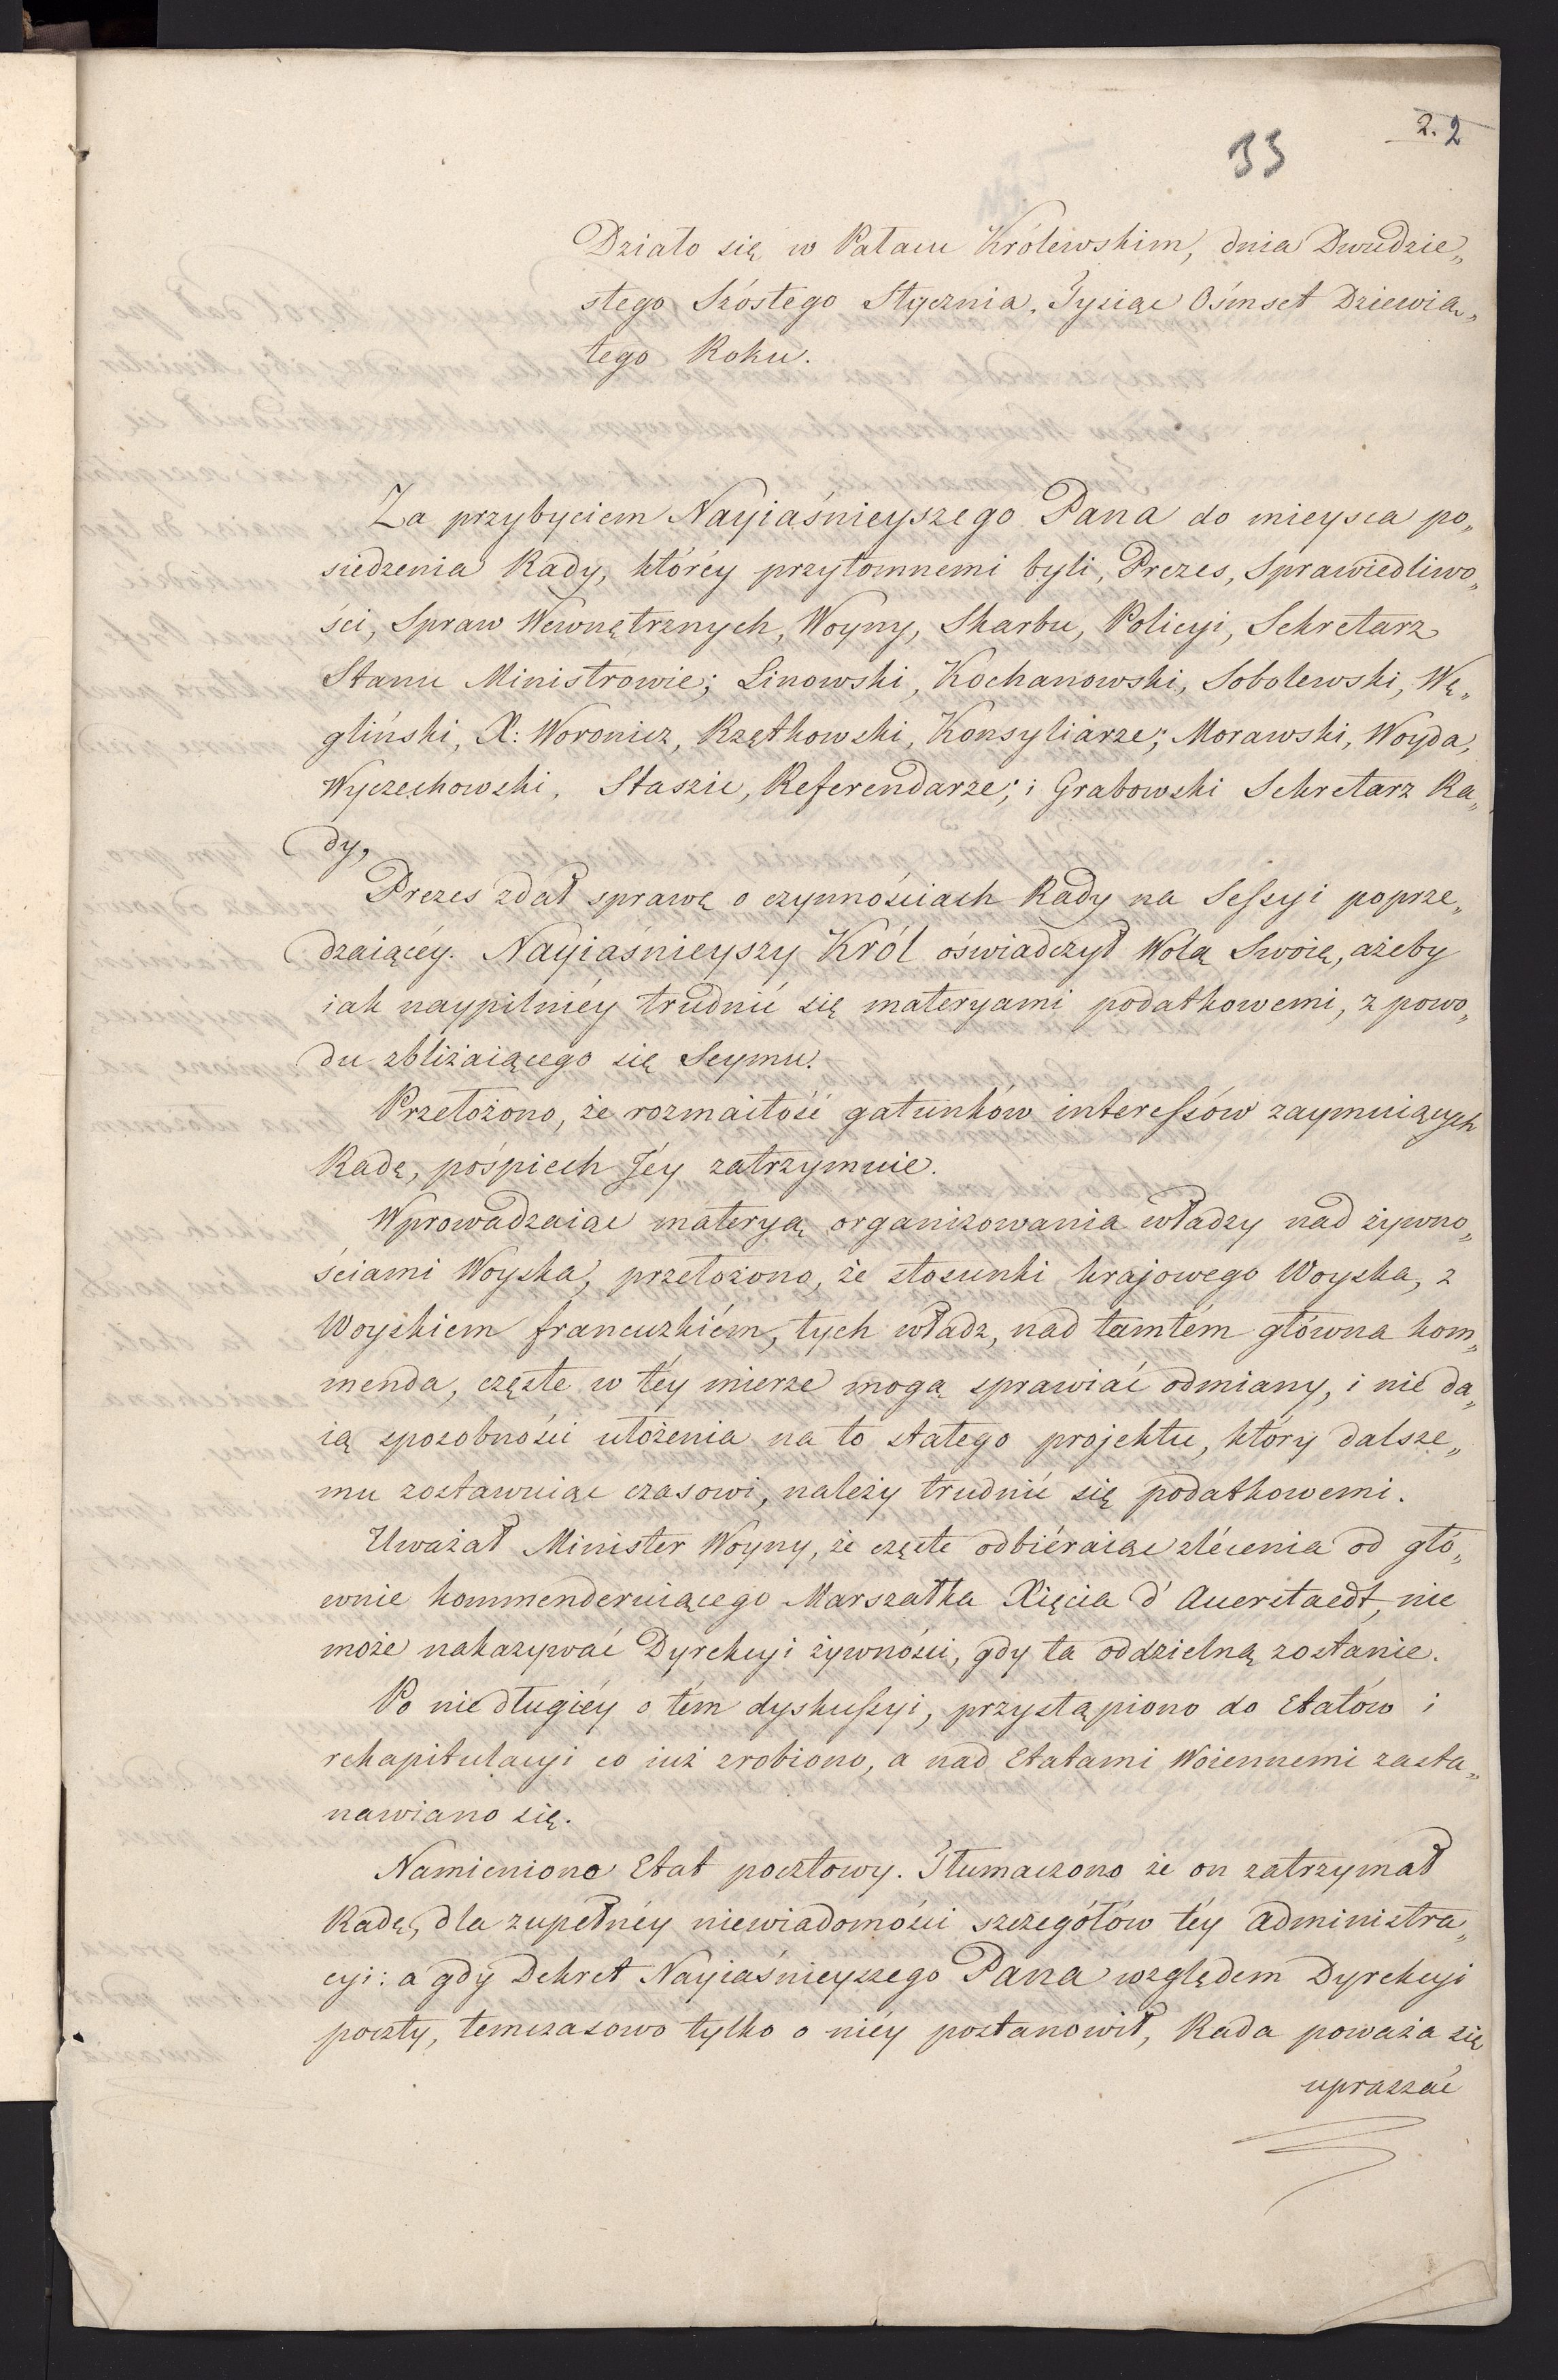 2. 2
33
Działo się w Pałacu Królewskim, dnia Dwudzie„
stego Szóstego Stycznia, Tysiąc Ośmset Dziewią„
tego Roku.
Za przybyciem Nayiaśnieyszego Pana do mieysca po„
siedzenia Rady, któréy przytomnemi byli, Prezes, Sprawiedliwo„
ści, Spraw Wewnętrznych, Woyny, Skarbu, Policyi, Sekretarz
Stanu Ministrowie; Linowski, Kochanowski, Sobolewski, Wę„
gliński, X: Woronicz, Rzętkowski, Konsyliarze; Morawski, Woyda,
Wyczechowski, Staszic, Referendarze; i Grabowski Sekretarz Ra„
dy,
Prezes zdał sprawę o czynnościach Rady na Sessyi poprze„
dzaiącéy. Nayiaśnieyszy Król oświadczył Wolą Swoię, ażeby
iak naypilniéy trudnić się materyami podatkowemi, z powo„
du zbliżaiącego się Seymu.
Przełożono, że rozmaitość gatunków interessów zaymuiących
Radę, pośpiech Jéy zatrzymuie.
Wprowadzaiąc materyą organizowania władzy nad żywno„
ściami Woyska, przełożono, że stosunki krajowego Woyska, z
Woyskiem francuzkiém, tych władz, nad tamtém główna kom„
menda, częste w téy mierze mogą sprawiać odmiany, i nie da„
ią sposobności ułożenia na to stałego projektu, który dalsze„
mu zostawuiąc czasowi, należy trudnić się podatkowemi.
Uważał Minister Woyny, że częste odbiéraiąc zlécenia od głó„
wnie kommenderuiącego Marszałka Xięcia d'Auerstaedt, nie
może nakazywać Dyrekcyi żywności, gdy ta oddzielną zostanie.
Po niedługiéy o tém dyskussyi, przystąpiono do Etatów i
rekapitulacyi co iuż zrobiono, a nad Etatami Woiennemi zasta„
nawiano się.
Namieniono Etat pocztowy. Tłumaczono że on zatrzymał
Radę, dla zupełnéy niewiadomości szczegółów téy Administra„
cyi: a gdy Dekret Nayiaśnieyszego Pana względem Dyrekcyi
poczty, temczasowo tylko o niéy postanowił, Rada poważa się
upraszać